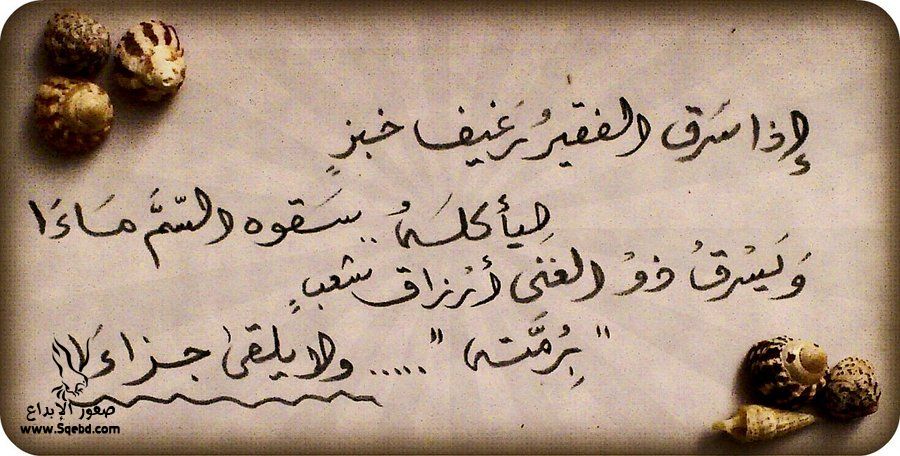 إذا سَرق الفقيرُ رَغيفا خبزٍ
ليأكلَهُ .. سَقوه السّمَّ مَاءَا
وَيَسْرقُ ذوْ الغنى أرْزاق شعبٍ
"بِرُمَّته" ..... ولا يلقى جزاءَا
صقور الإبداع
www.Sqebd.com